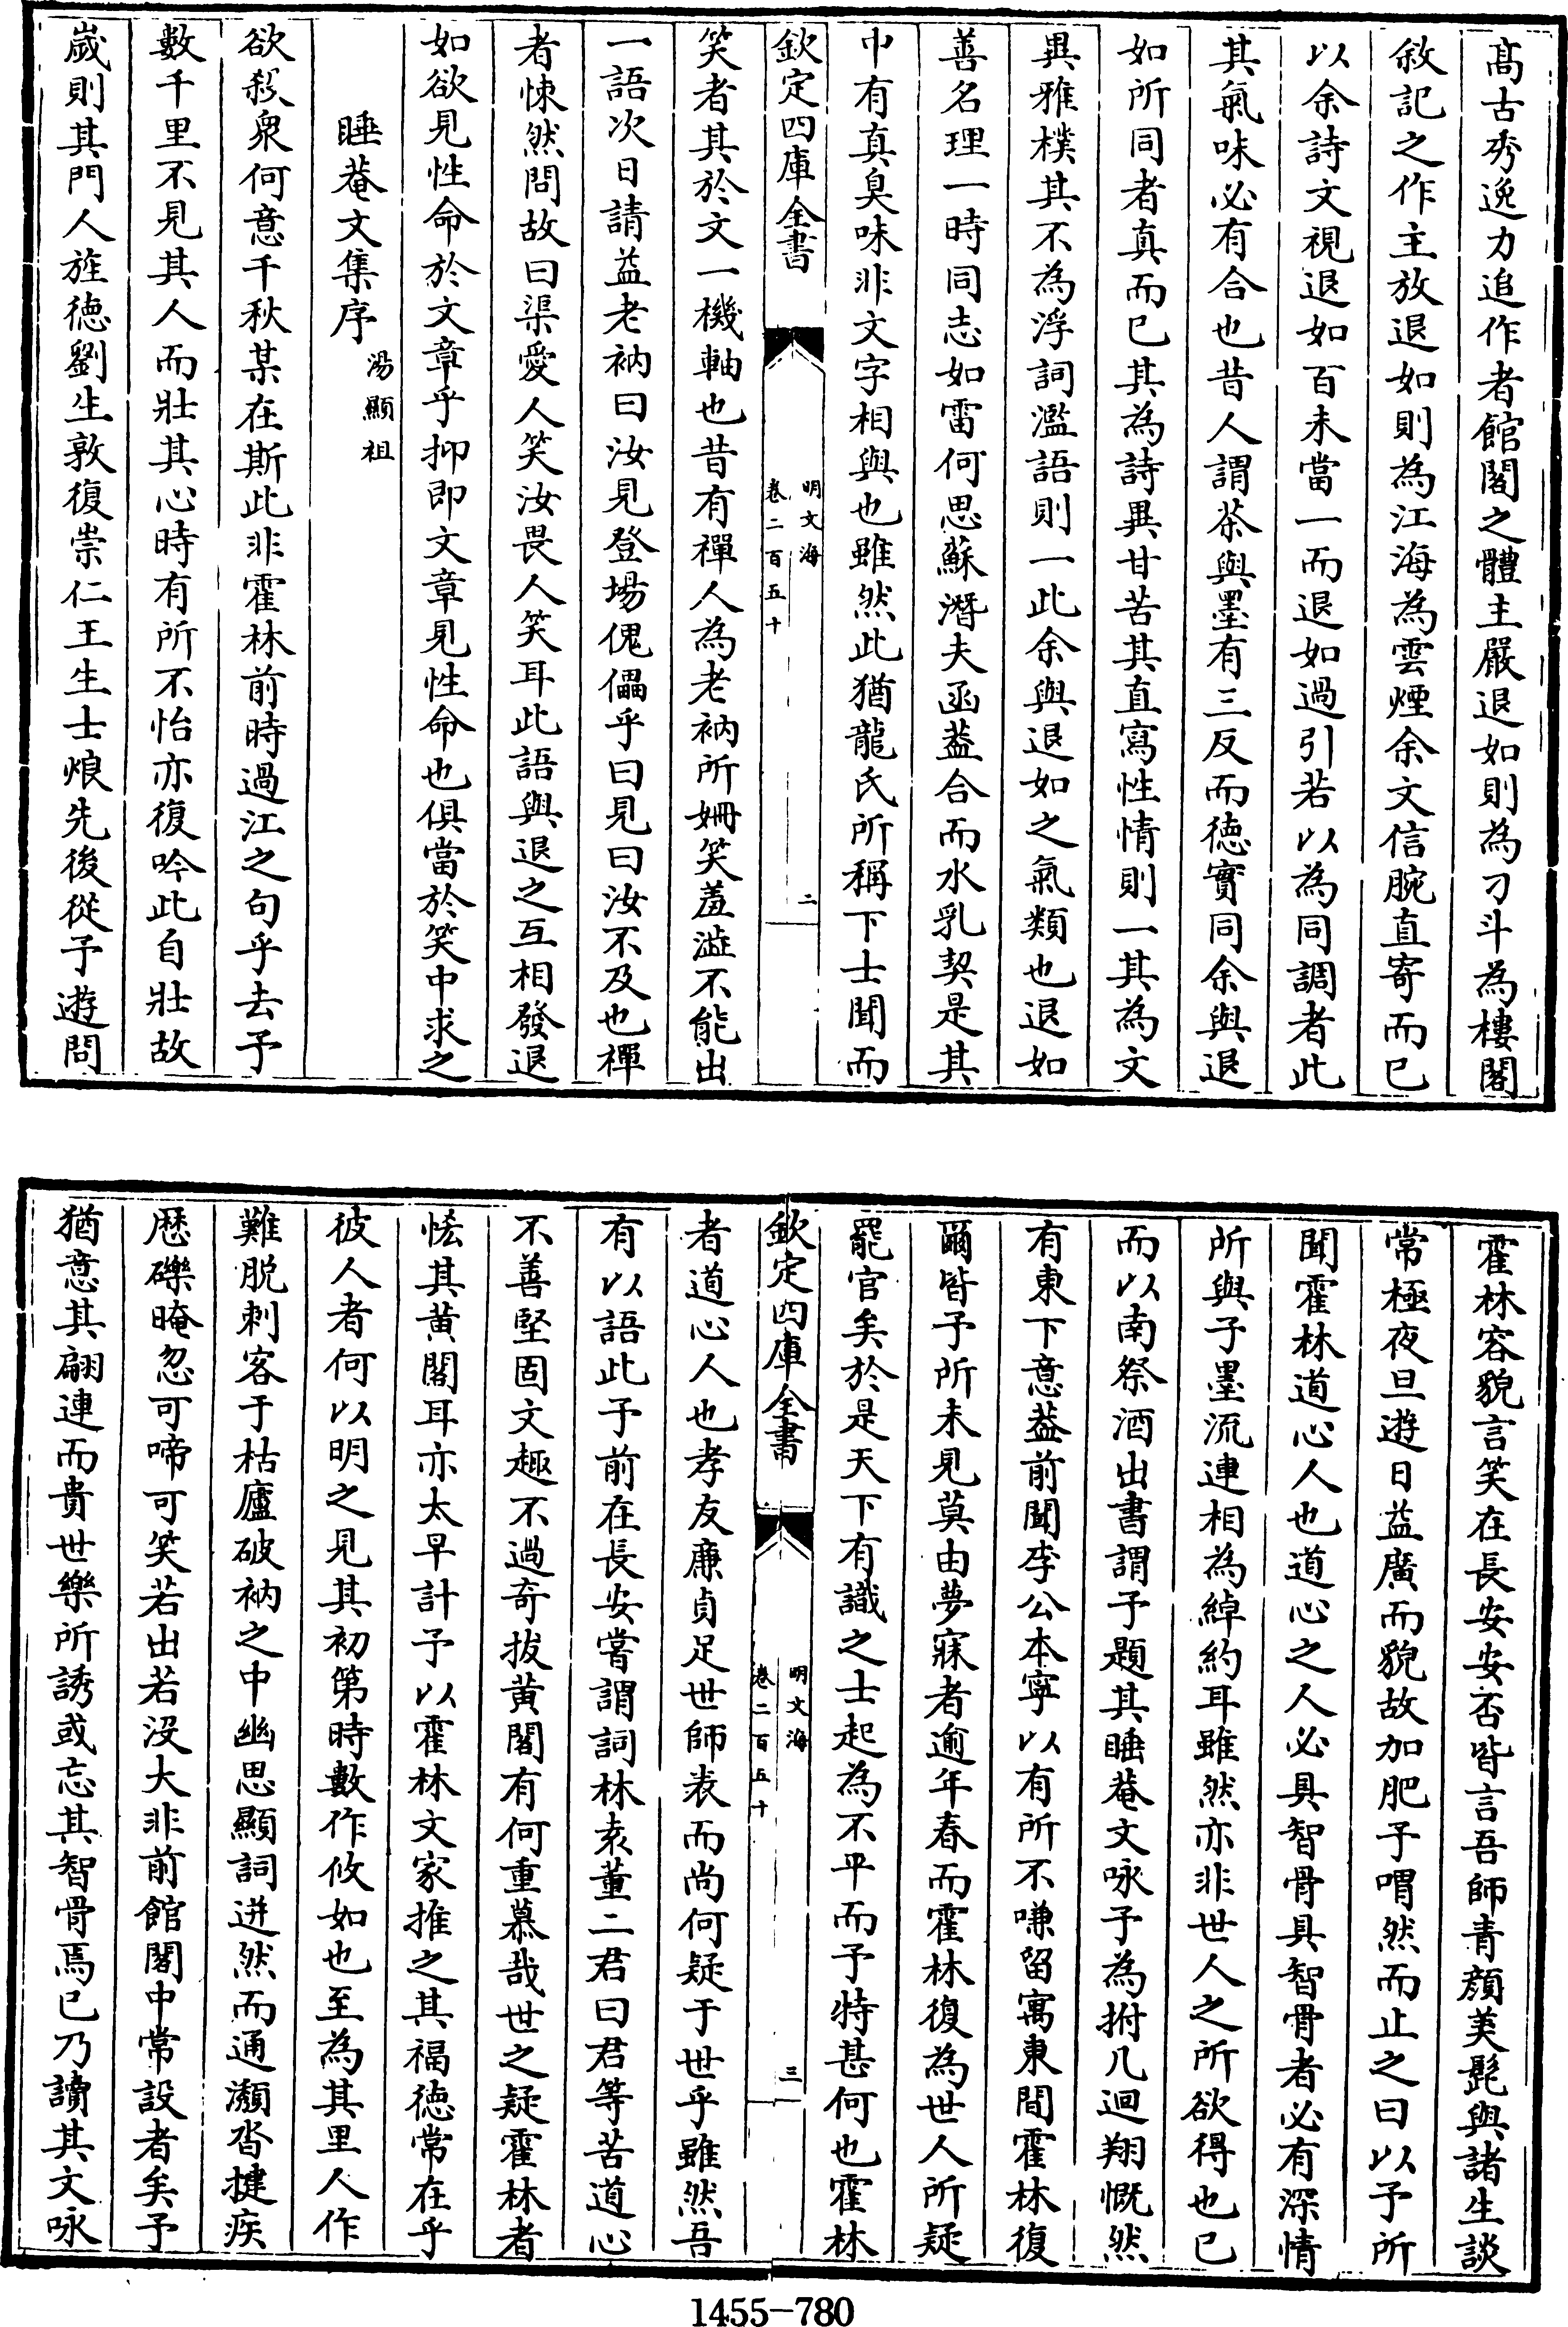 髙古秀逸力追作者館閣之體主嚴退如則為刁斗為樓閣
敘記之作主放退如則為江海為雲煙余文信腕直寄而已
以余詩文視退如百未當一而退如過引若以為同調者此
其氣味必有合也昔人謂茶與墨有三反而徳實同余與退
如所同者真而已其為詩異甘苦其直寫性情則一其為文
異雅樸其不為浮詞濫語則一此余與退如之氣類也退如
善名理一時同志如雷何思蘇潛夫函葢合而水乳契是其
中有真臭味非文字相與也雖然此猶龍氏所稱下士聞而
欽定四庫全書
明文海
卷二百五十
二
笑者其於文一機軸也昔有禪人為老衲所姍笑羞澁不能出
一語次日請益老衲曰汝見登場傀儡乎曰見曰汝不及也禪
者悚然問故曰渠愛人笑汝畏人笑耳此語與退之互相發退
如欲見性命於文章乎抑即文章見性命也俱當於笑中求之
睡菴文集序
湯顯祖
欲殺衆何意千秋某在斯此非霍林前時過江之句乎去予
數千里不見其人而壯其心時有所不怡亦復吟此自壯故
嵗則其門人旌徳劉生敦復崇仁王生士烺先後從予遊問
霍林容貌言笑在長安安否皆言吾師青顔美髭與諸生談
常極夜旦遊日益廣而貌故加肥予喟然而止之曰以予所
聞霍林道心人也道心之人必具智骨具智骨者必有深情
所與予墨流連相為綽約耳雖然亦非世人之所欲得也已
而以南祭酒出書謂予題其睡菴文咏予為拊几迴翔慨然
有東下意葢前聞李公本寧以有所不嗛留寓東間霍林復
爾皆予所未見莫由夢寐者逾年春而霍林復為世人所疑
罷官矣於是天下有識之士起為不平而予特甚何也霍林
欽定四庫全書
明文海
卷二百五十
三
者道心人也孝友廉貞足世師表而尚何疑于世乎雖然吾
有以語此予前在長安嘗謂詞林袁董二君曰君等苦道心
不善堅固文趣不過奇拔黄閣有何重慕哉世之疑霍林者
恡其黄閣耳亦太早計予以霍林文家推之其福徳常在乎
彼人者何以明之見其初第時數作攸如也至為其里人作
難脱刺客于枯廬破衲之中幽思顯詞迸然而通瀨沓揵疾
厯礫晻忽可啼可笑若出若沒大非前館閣中常設者矣予
猶意其翩連而貴世樂所誘或忘其智骨焉已乃讀其文咏